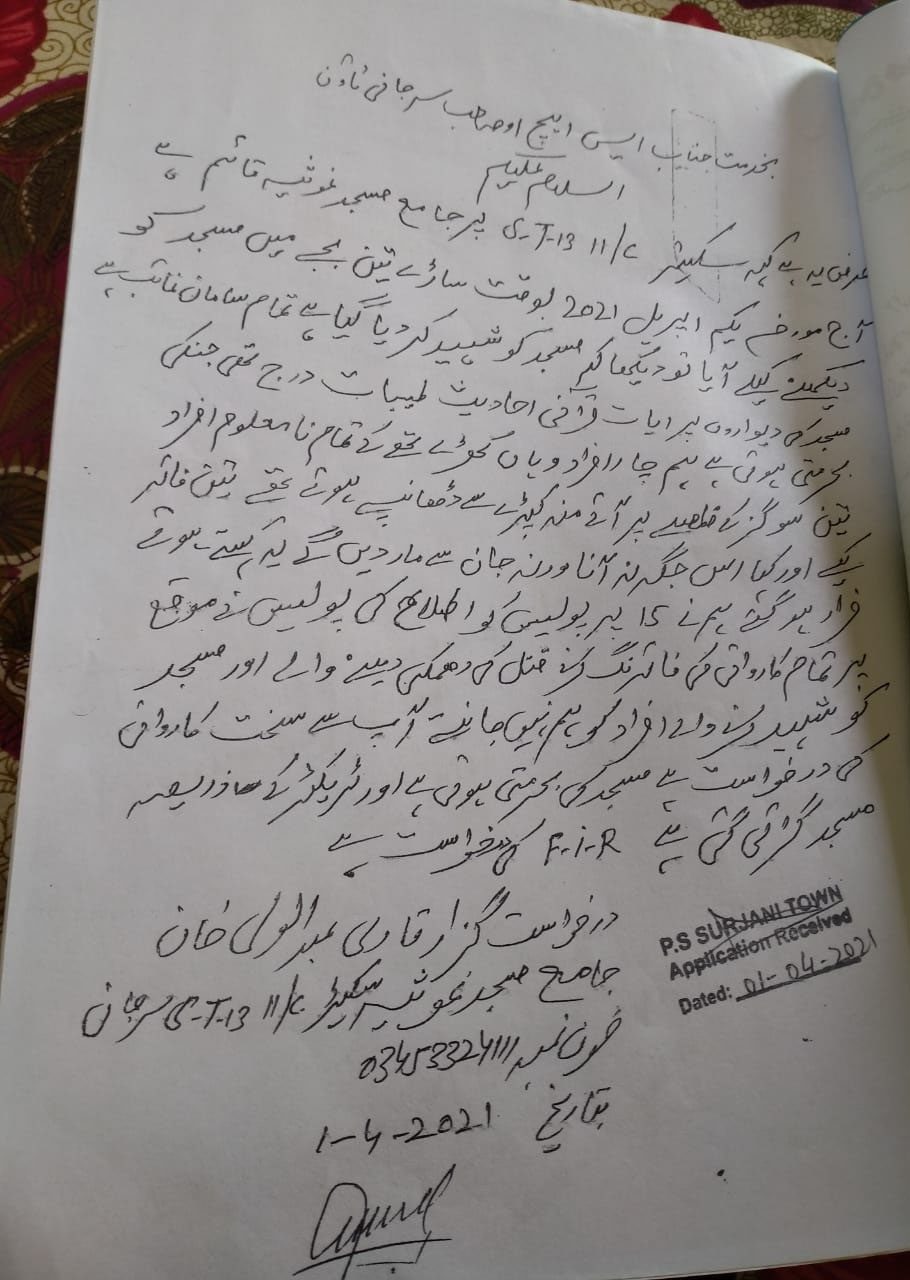 بخدمت جناب ایس ایچ او صاحب سرجانی ٹاؤن
السلام علیکم
عرض یہ ہے کہ سیکٹر 11/c S-T-13 پر جامع مسجد غوثیہ قائم ہے
آج مورخہ یکم اپریل 2021 بوقت ساڑے تین بجے میں مسجد کو
دیکھنے کیلئے آیا تو دیکھا کہ مسجد کو شہید کر دیا گیا ہے تمام سامان غائب ہے
مسجد کی دیواروں پر ایات قرآنی احادیث طیبات درج تھی جنکی
بحرمتی ہوئی ہے ہم چار افراد وہاں کھڑے تھے کے تمام نا معلوم افراد
تین سو گز کے فاصلے پر آئے منہ کپڑے سے ڈھانپے ہوئے تھے تین فائر
کیے اور کہا اس جگہ نہ آنا ورنہ جان سے مار دیں گے یہ کہتے ہوئے
فرار ہو گئے ہم نے 15 پر پولیس کو اطلاع کی پولیس نے موقع
پر تمام کاروائی کی فائرنگ کرنے قتل کی دھمکی دینے والے اور مسجد
کو شہید کرنے والے افراد کو ہم نہیں جانتے آپ سے سخت کاروائی
کی درخواست ہے مسجد کی بحرمتی ہوئی ہے اور ٹریکٹر کے ذریعہ
مسجد گرائی گئی ہے F-i-R کی درخواست ہے
درخواست گزار قاری عبدالولی خان
جامع مسجد غوثیہ سیکٹر 11/c S-T-13 سرجان
فون نمبر 03453324111
بتاریخ 1-4-2021
P.S SURJANI TOWN
Application Received
Dated: 01-04-2021